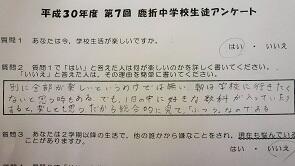 平成30年度 第7回 鹿折中学校生徒アンケート
質問1 あなたは今、学校生活が楽しいですか。
はい ・ いいえ
質問2 問1で「はい」と答えた人は何が楽しいのかを詳しく書いてください。
「いいえ」と答えた人は、その理由を簡単に書いてください。
別に全部が楽しいというわけでは無い。朝は学校に行きたく
ないと思う時もある。でも、1日の中に好きな教科が入っていたり
すると、楽しいとも思うから総合的に見て、「ふつう」なのである
質問3 あなたは2学期以降の生活で、他の誰かから嫌なことをされ、現在も悩んでいるこ
とがありますか。
はい ・ いいえ